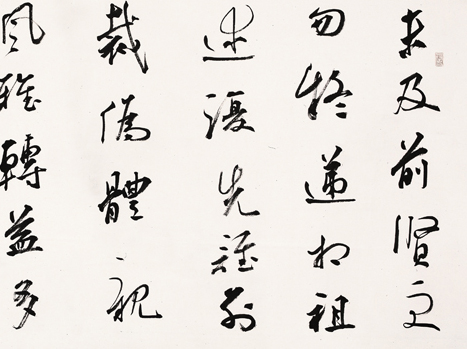 未及前賢更
勿疑遞相祖
述復先誰別
裁偽體親
風雅轉益多